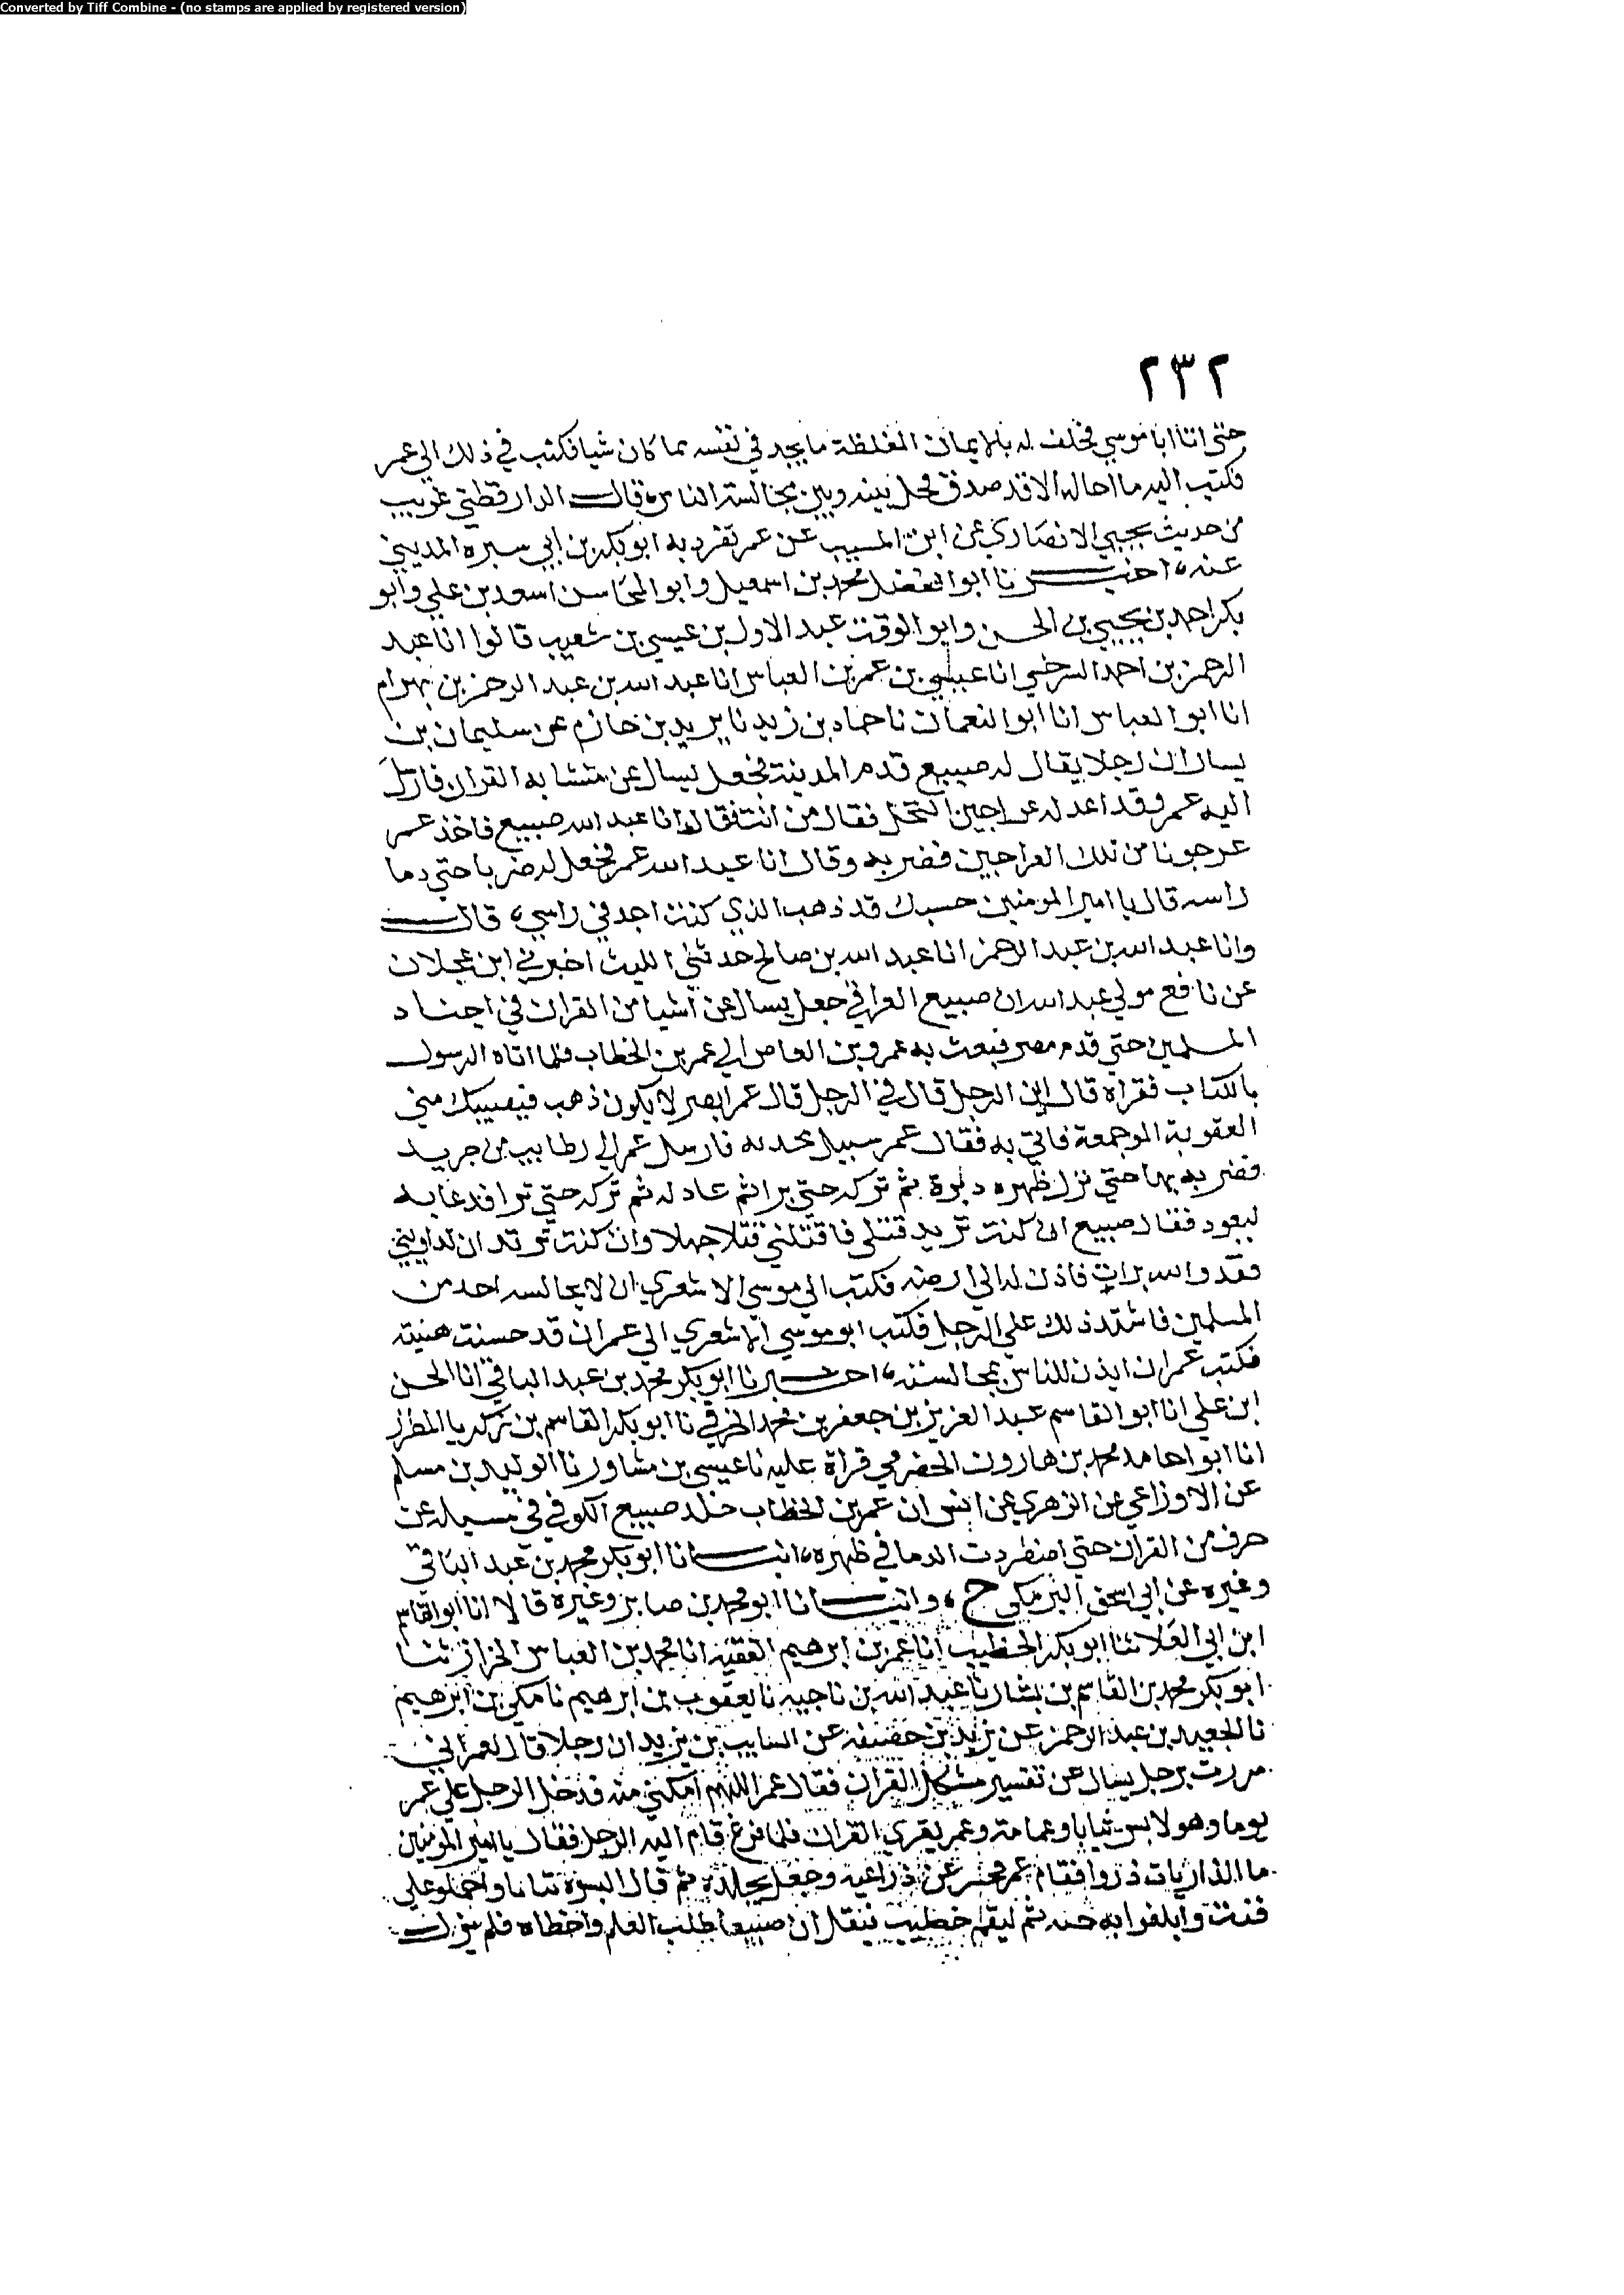 Converted by Tiff Combine - (no stamps are applied by registered version)
٢٣٢
حتى اتا ابا موسي فحلف له بالايمان المغلظة ما يجد في نفسه مما كان شيا فكتب في ذلك الي عمر
فكتب اليه ما احاله الا قد صدق فحل بينه وبين مجالسته الناس، قال الدارقطني غريب
من حديث يحيي الانصاري عن ابن المسيب عن عمر تفرد به ابو بكر بن ابي سبره المديني
عنه، اخبرنا ابوا الفضل محمد بن اسمعيل وابو المحاسن اسعد بن علي وابو
بكر احمد بن يحيي بن الحسن وابو الوقت عبد الاول بن عيسي بن شعيب قالوا انا عبد
الرحمن بن احمد السرخسي انا عيسي بن عمر بن العباس انا عبد الله بن عبد الرحمن بن بهرام
انا ابو العباس انا ابو النعمان نا حماد بن زيد نا يزيد بن حازم عن سليمان بن
يسار ان رجلا يقال له صبيع قدم المدينة فجعل يسال عن متشابه القران فارسل
اليه عمر وقد اعد له عراجين النخل فقال من انت فقال انا عبد الله صبيع فاخذ عمر
عرجونا من تلك العراجين فضربه وقال انا عبد الله عمر فجعل له ضربا حتي دما
راسه قال يا امير المومنين حسبك قد ذهب الذي كنت اجد في راسي، قال
وانا عبد الله بن عبد الرحمن انا عبد الله بن صالح حدثني الليث اخبرني ابن عجلان
عن نافع مولي عبد الله ان صبيع العراقي جعل يسال عن اشيا من القران في اجناد
المسلمين حتي قدم مصر فبعث به عمرو بن العاص الي عمر بن الخطاب فلما اتاه الرسول
بالكتاب فقراه قال اين الرجل قال في الرحل قال عمر ابصر لا يكون ذهب فيصيبك مني
العقوبة الموجعة فاتي به فقال عمر سبيل محدثه فارسل عمر الي رطايب من جريد
فضربه بها حتي نزل ظهره دبرة ثم تركه حتي برا ثم عاد له ثم تركه حتي برا فدعا به
ليعود فقال صبيع ان كنت تريد قتلي فاقتلني قتلا جملا وان كنت تريد ان تداويني
فقد والله برات فاذن له الي ارضه فكتب الي موسي الاشعري ان لا يجالسه احد من
المسلمين فاشتد ذلك علي الرجل فكتب ابو موسي الاشعري الي عمر ان قد حسنت هيئته
فكتب عمر ان ايذن للناس بمجالسته، اخبرنا ابو بكر محمد بن عبد الباقي انا الحسن
ابن علي انا ابو القاسم عبد العزيز بن جعفر بن محمد الخرقي نا ابو بكر القاسم بن زكريا المطرز
انا ابوا حامد محمد بن هارون الحضرمي قراة عليه نا عيسي بن مشاور نا الوليد بن مسلم
عن الاوزاعي عن الزهري عن انس ان عمر بن الخطاب جلد صبيع الكوفي في مسيله عن
حرف من القران حتي اضطردت الدما في ظهره، انبانا ابو بكر محمد بن عبد الباقي
وغيره عن ابي اسحق البرمكي ح، وانبانا ابو محمد بن صابر وغيره قالا انا ابو القاسم
ابن ابي العلا ثنا ابو بكر الخطيب انا عمر بن ابرهيم الفقيه انا محمد بن العباس الخزاز ثنا
ابو بكر محمد بن القاسم بن بشار نا عبد الله بن ناجيه نا يعقوب بن ابرهيم نا مكي بن ابرهيم
نا الجعيد بن عبد الرحمن عن يزيد بن خصيفه عن السايب بن يزيد ان رجلا قال لعمر اني
مررت برجل يسال عن تفسير مشكل القران فقال عمر اللهم امكني منه فدخل الرجل علي عمر
يوما وهو لابس ثيابا وعمامة وعمر يقري القران فلما فرغ قام اليه الرجل فقال يا امير المومنين
ما الذاريات ذروا فقام عمر فحسر عن ذراعيه وجعل يجلده ثم قال البسوه تبانا واحملوه علي
قتب وابلغوا به حيه ثم ليقم خطيب فيقل ان صبيعا طلب العلم واخطاه فلم يزل